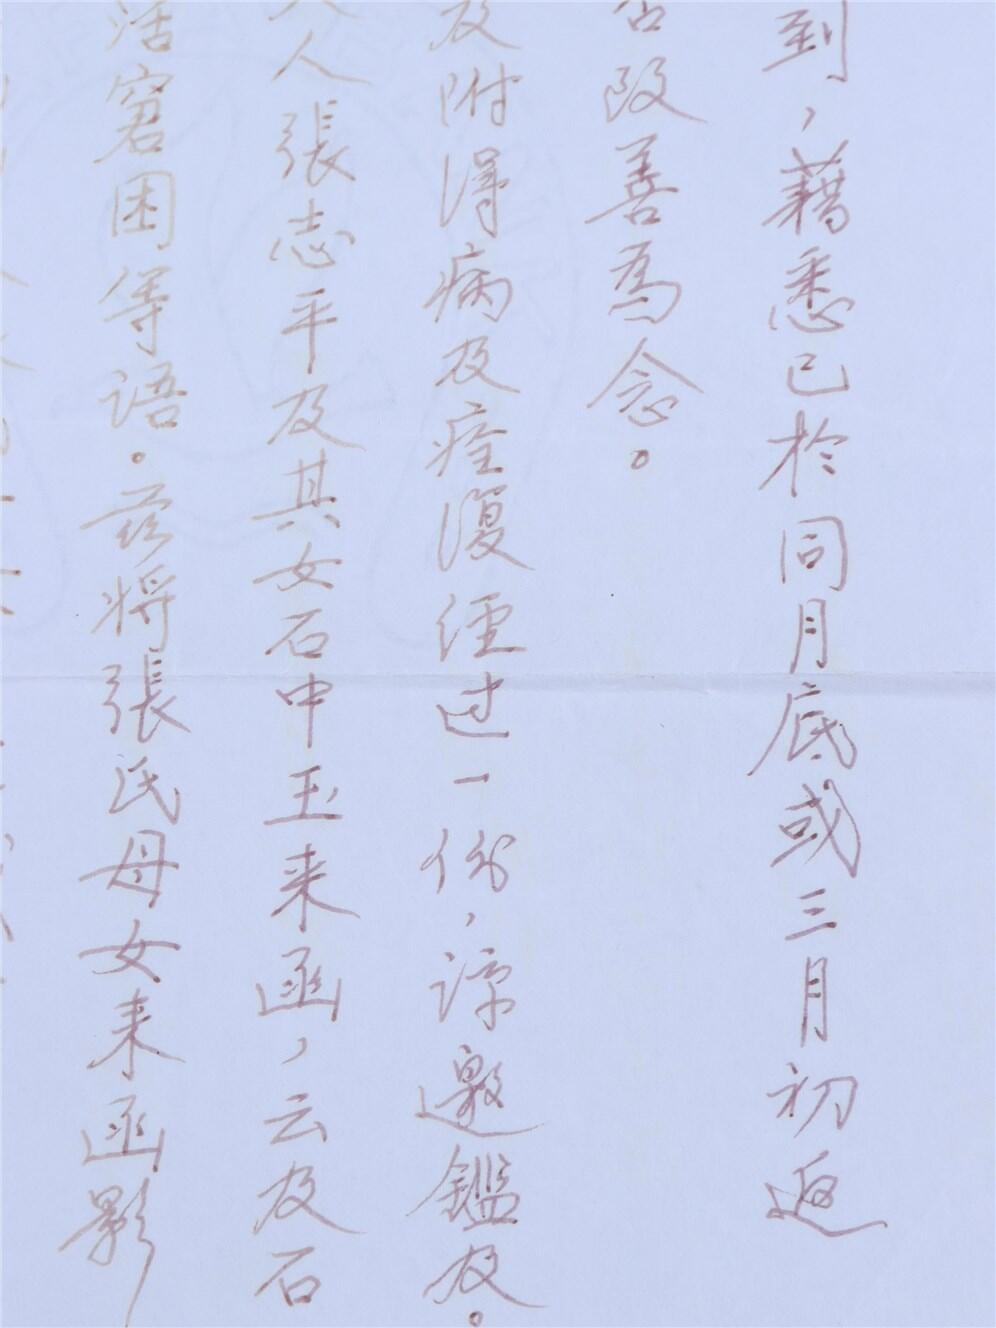 到，藉悉已於同月底或三月初返
否改善為念。
及附得病及痊復經过一份，諒邀鑑及。
人張志平及其女石中玉来函，云及石
活窘困等语。兹将張氏母女来函影